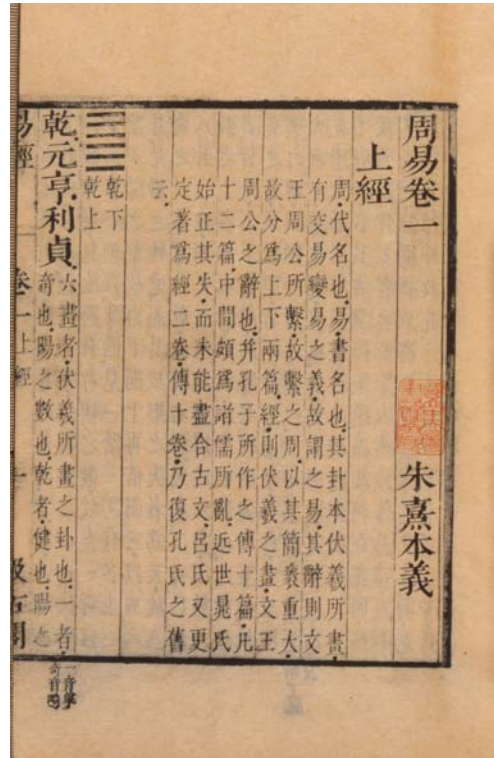 周易卷一
朱熹本義
上經
周代名也易書名也其卦本伏羲所畫
有交易變易之義故謂之易其辭則文
王周公所繫故繫之周以其簡袠重大
故分爲上下兩篇經則伏羲之畫文王
周公之辭也幷孔子所作之傳十篇凡
十二篇中間頗爲諸儒所亂近世晁氏
始正其失而未能盡合古文呂氏又更
定著爲經二卷傳十卷乃復孔氏之舊
云
乾下
乾上
乾元亨利貞
六畫者伏羲所畫之卦也一者
奇也陽之數也乾者健也陽之
易經
卷一上經
一音擧
奇音